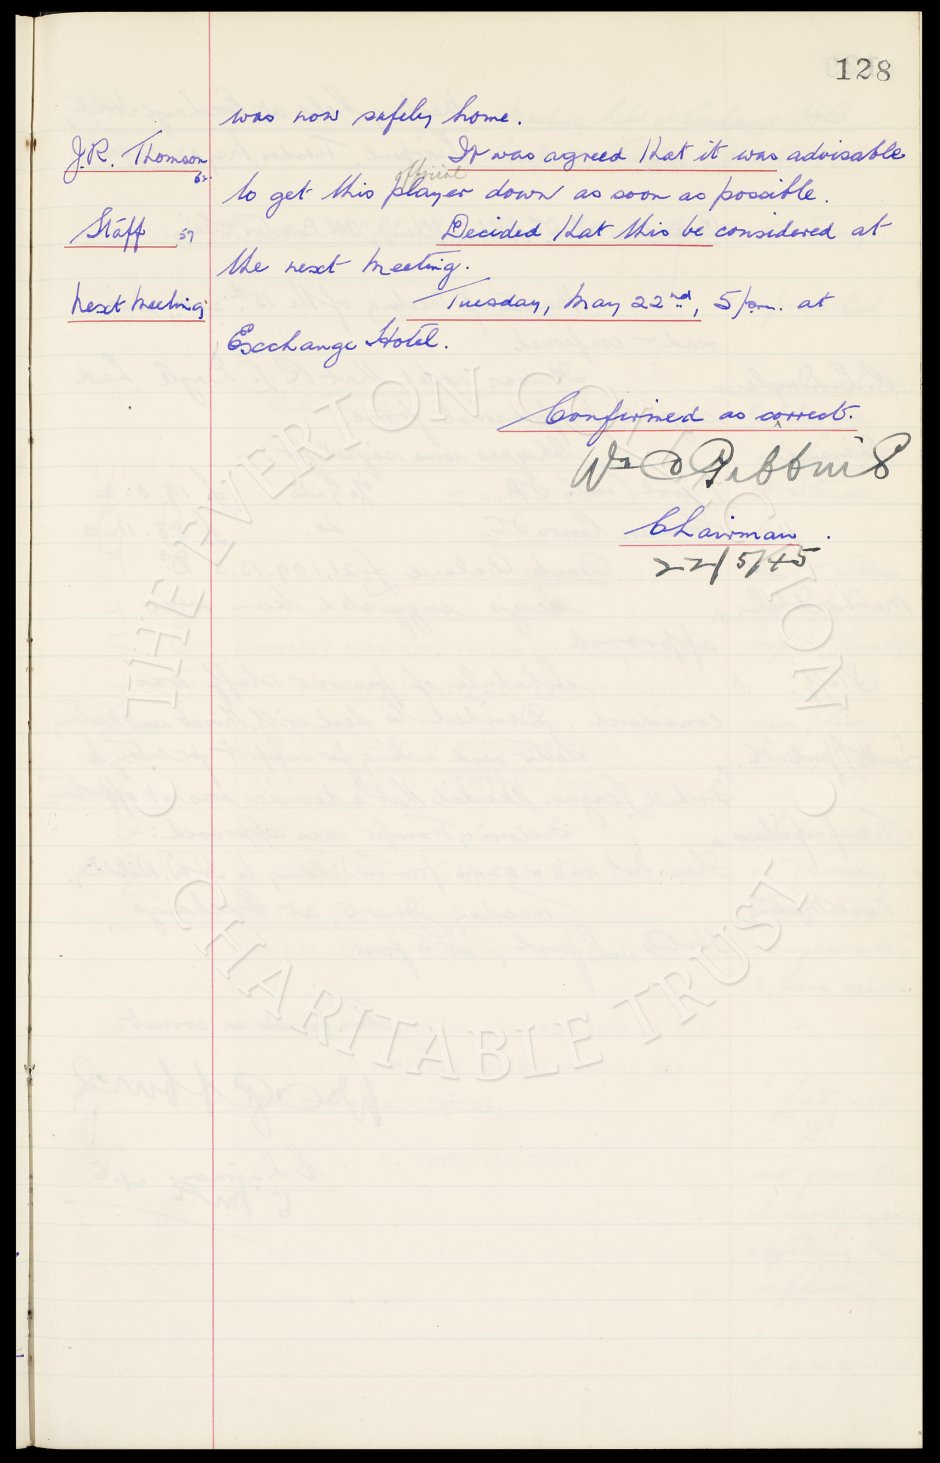 128
was now safely home.
J.R. Thomson 62 It was agreed that it was advisable
official
to get this player down as soon as possible.
Staff 57 Decided that this be considered at
the next meeting.
Next Meeting Tuesday, May 22nd, 5 p.m. at
Exchange Hotel.
Confirmed as correct.
Wm C Gibbins
Chairman.
22/5/45
THE EVERTON COLLECTION
CHARITABLE TRUST